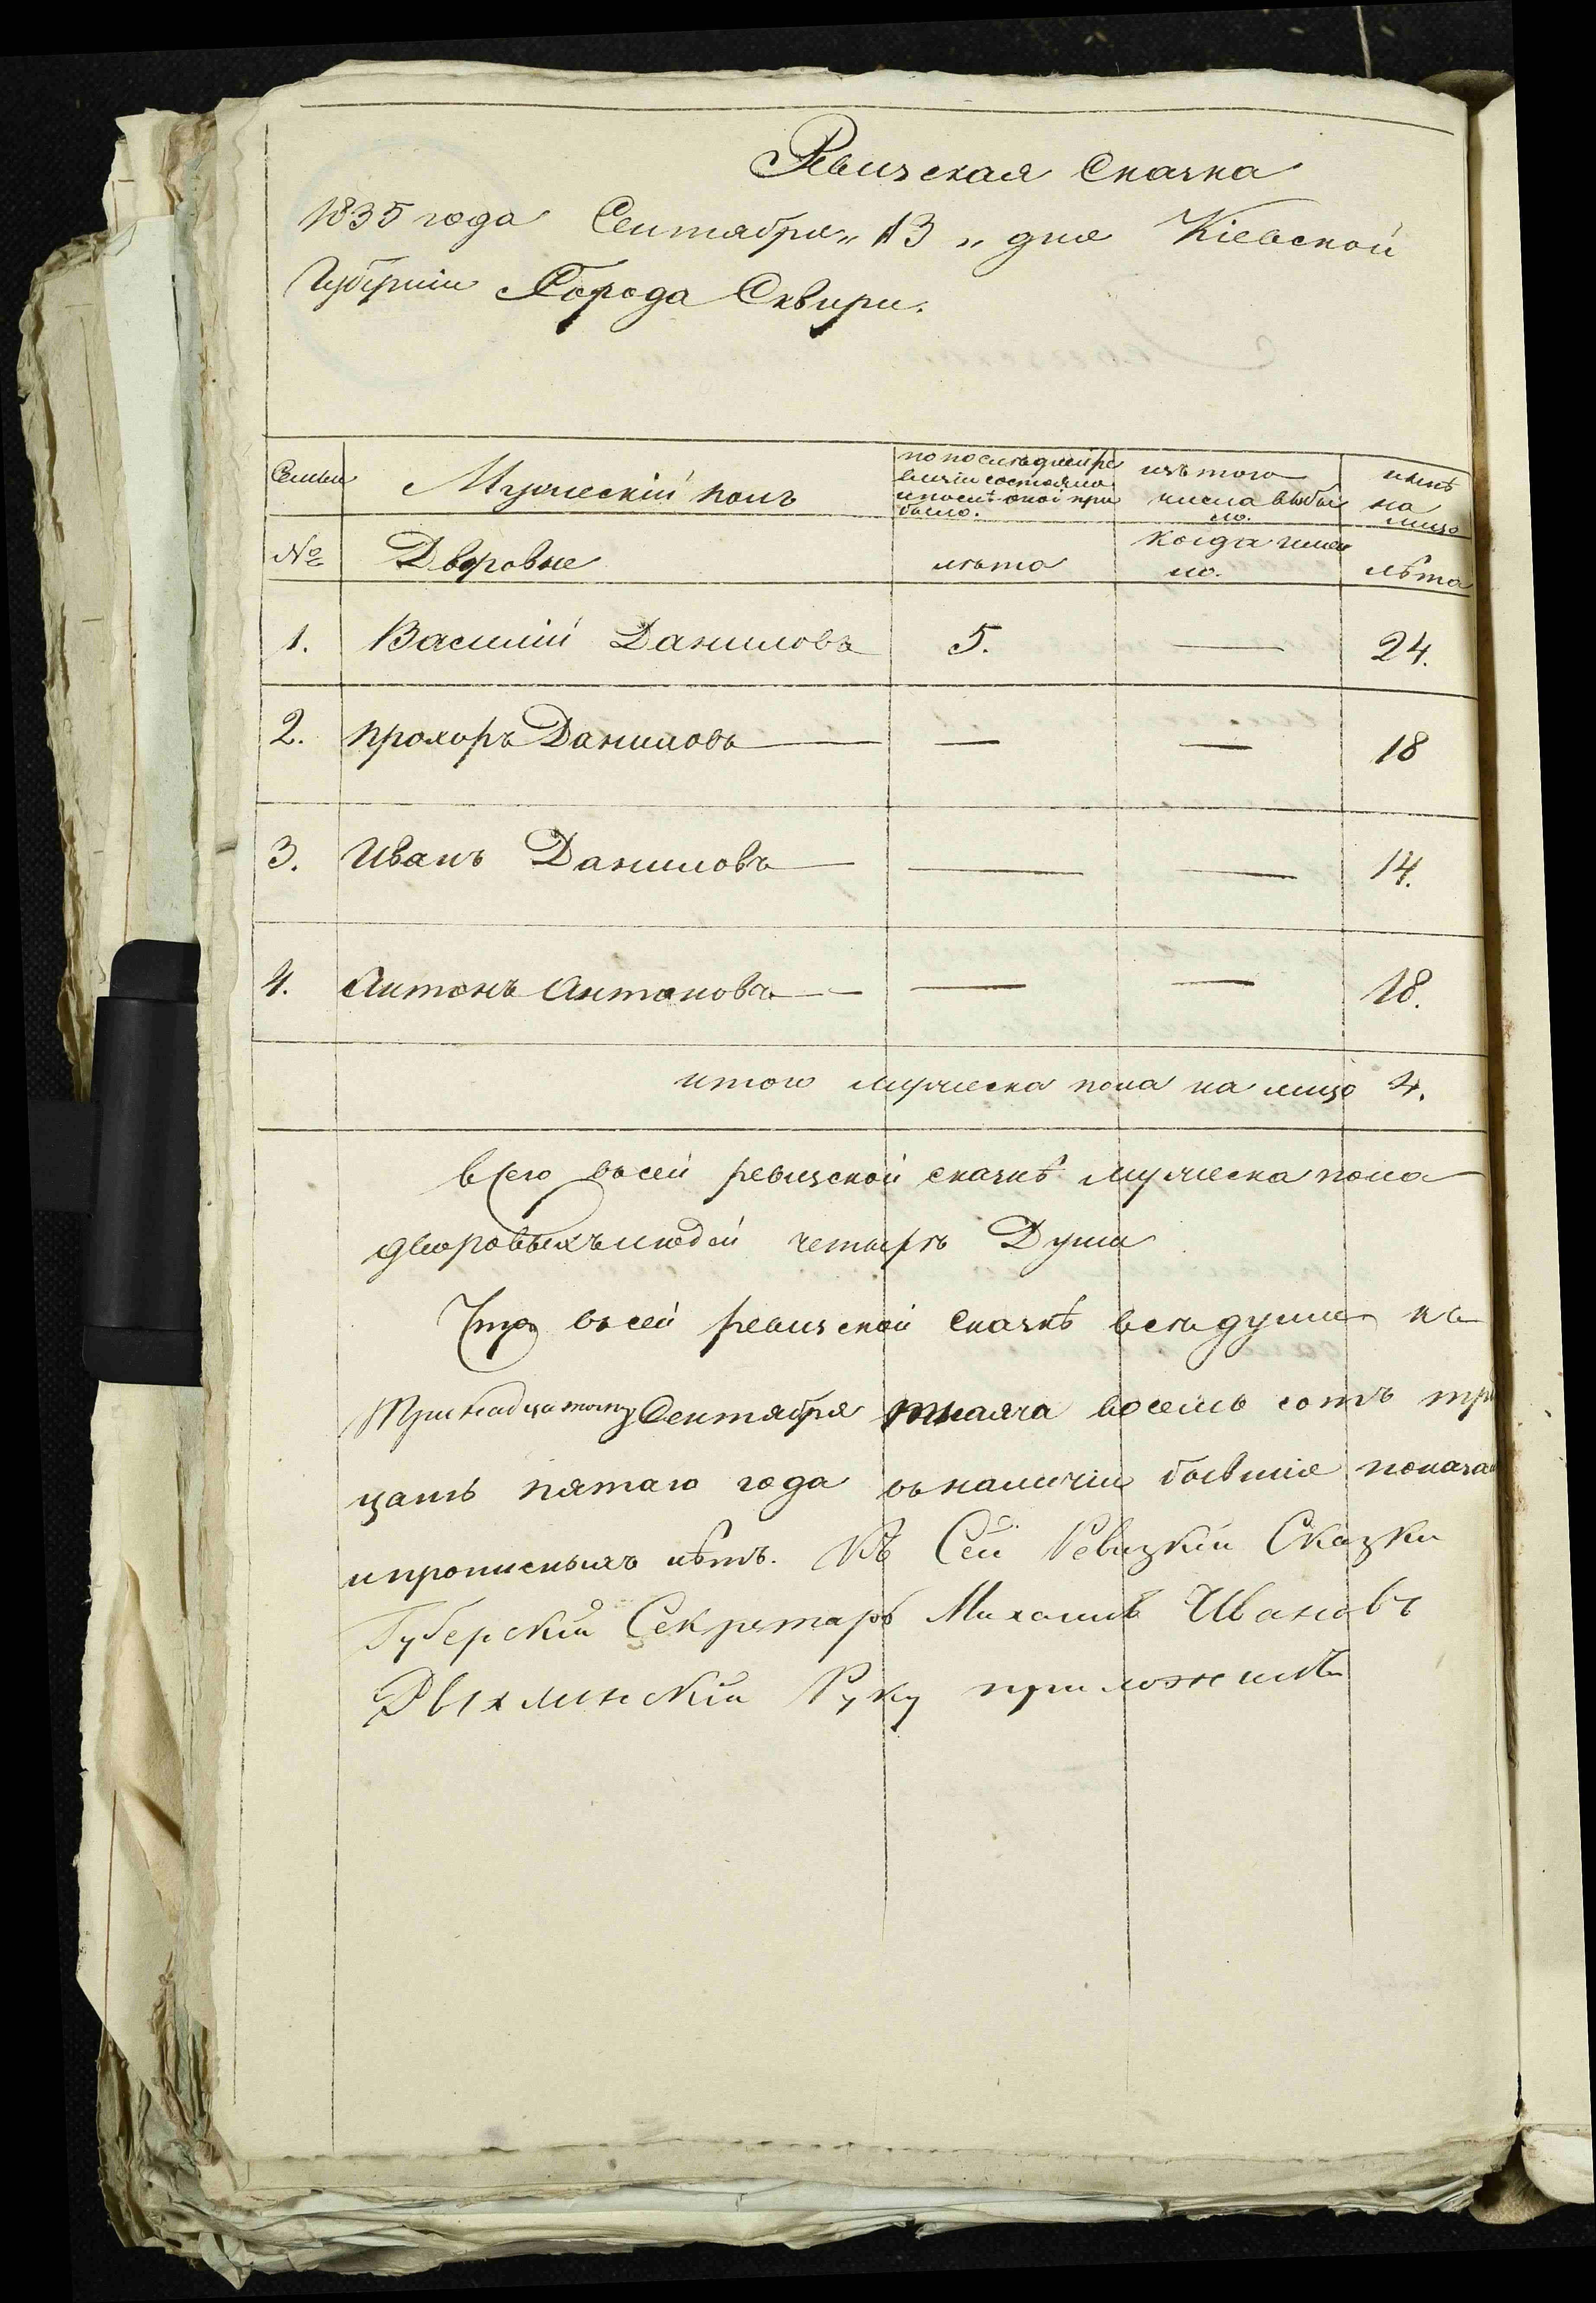 Ревизская Сказка
1835 года Сентября „ 13 „ дня Кіевской
Губерніи Города Сквири.
Семьи Мужескій полъ по последней ре изъ того нынѣ
визіи состояло числа выбы на
и после оной при ло. лицо
было.
№ Дворовые лета когда имен лѣта
но.
1. Василій Даниловъ 5. — 24.
2. Прохоръ Даниловъ — — — 18
3. Иванъ Даниловъ — — — 14.
4. Антонъ Антоновъ — — — 18.
итого мужеска пола на лицо 4.
всего въ сей ревизской сказкѣ мужеска пола
дворовыхъ людей четыре Души
Что въ сей ревизской сказкѣ все души къ
Тринадцатому Сентября тысяча восемь сотъ три
цать пятаго года въ наличіи бывшіе показа
и прописныхъ нѣтъ. Къ Сей Ревизкіи Сказки
Губерскій Секретарь Михаилъ Ивановъ
Рыхлинскій Руку приложилъ